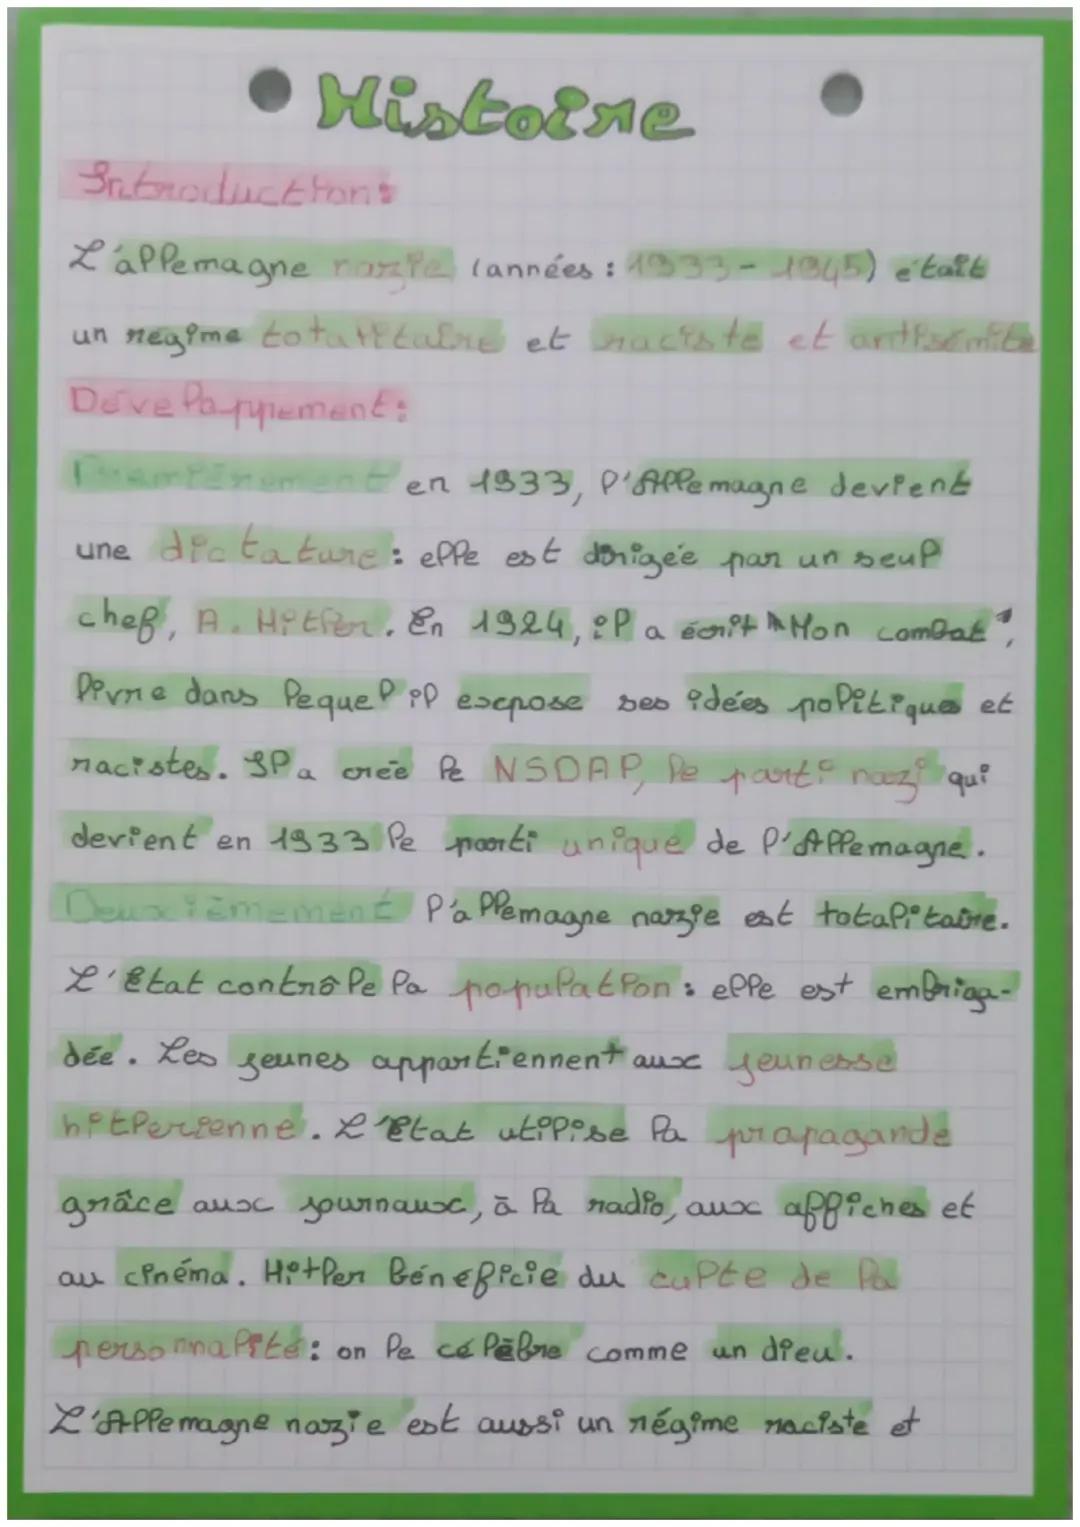 Histoire
Introduction:
L'allemagne nazie (années : 1933 - 1945) était
un régime totalitaire et raciste et antisémite
Développement:
Premièrement en 1933, l'Allemagne devient
une dictature : elle est dirigée par un seul
chef, A. Hitler. En 1924, il a écrit "Mon combat",
livre dans lequel il expose ses idées politiques et
racistes. Il a créé le NSDAP, le parti nazi qui
devient en 1933 le parti unique de l'Allemagne.
Deuxièmement l'allemagne nazie est totalitaire.
L'état contrôle la population : elle est embriga-
dée. Les jeunes appartiennent aux jeunesse
hitlérienne. L'état utilise la propagande
grâce aux journaux, à la radio, aux affiches et
au cinéma. Hitler bénéficie du culte de la
personnalité : on le célèbre comme un dieu.
L'Allemagne nazie est aussi un régime raciste et